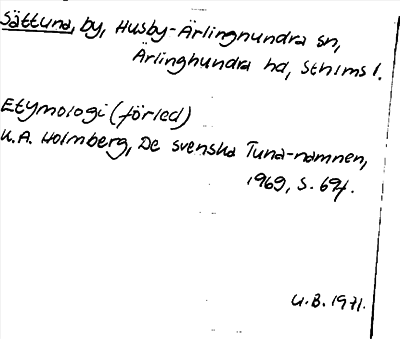 Sättuna, by, Husby-Ärlinghundra sn,
Ärlinghundra hd, Sthlms l.
Etymologi (förled)
K.A. Holmberg, De svenska Tuna-namnen,
1969, s. 69f.
U.B. 1971.